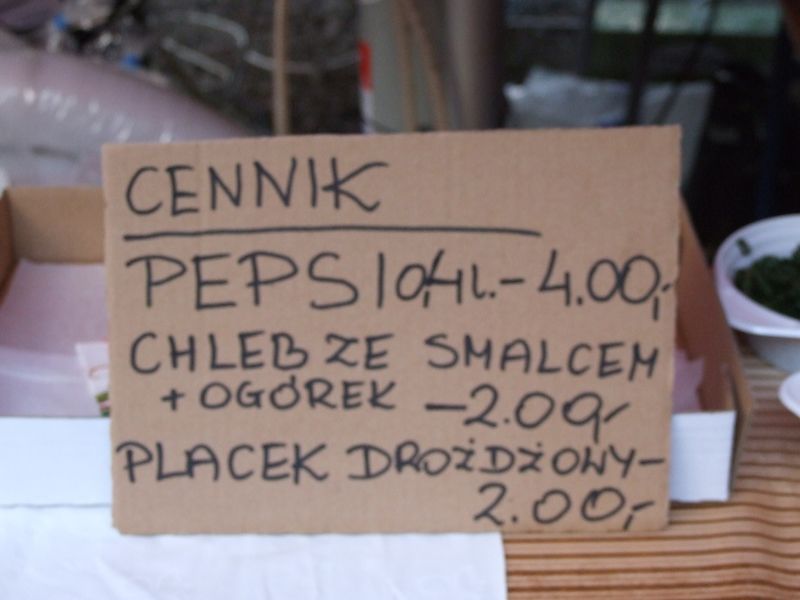 CENNIK
PEPSI 0,4l. - 4.00,-
CHLEB ZE SMALCEM
+ OGÓREK - 2.00,-
PLACEK DROŻDŻOWY -
2.00,-